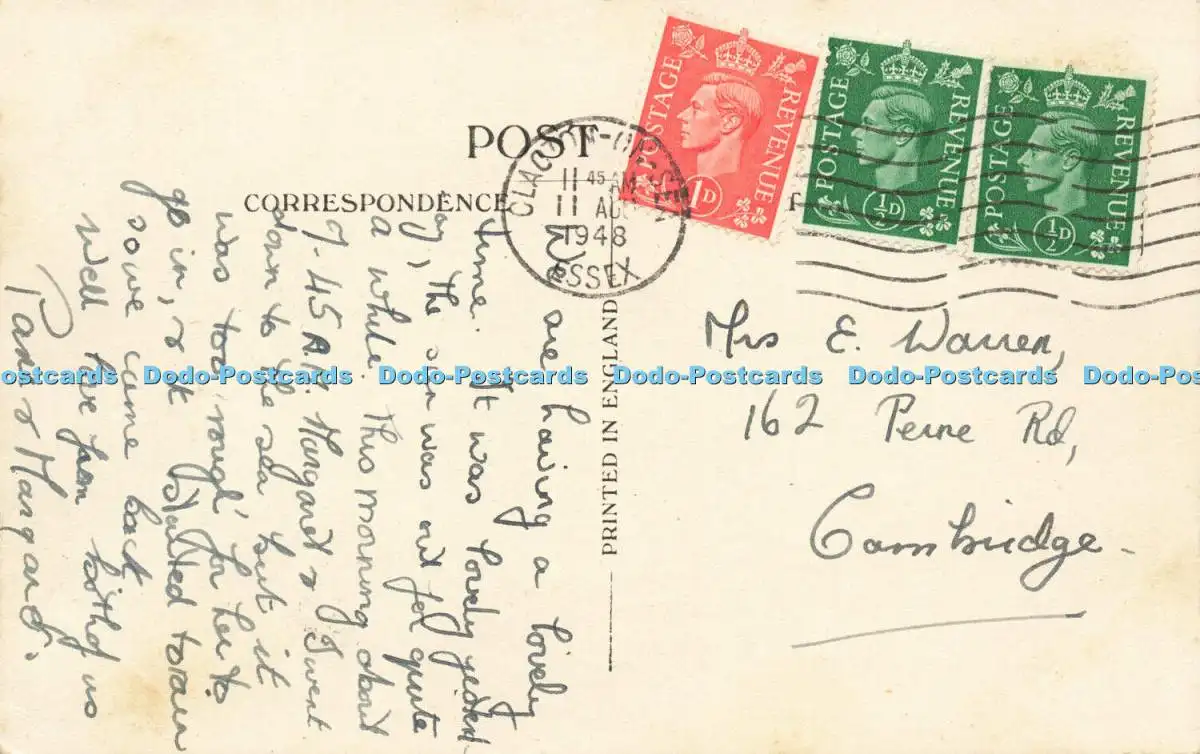 POST
CORRESPONDENCE
PRINTED IN ENGLAND
CLACTON-ON-SEA
11 45 AM
11 AUG
1948
ESSEX
POSTAGE REVENUE
1D
POSTAGE REVENUE
½D
POSTAGE REVENUE
½D
We are having a lovely
time. It was lovely yesterd-
ay, the sun was out for quite
a while. This morning about
7-45 A.M. Margaret & I went
down to the sea but it
was too 'rough' for her to
go in, & it started to rain
so we came back
Well love from both of us
Pam & Margaret.
Mrs E. Warren,
162 Perne Rd,
Cambridge.
Dodo-Postcards Dodo-Postcards Dodo-Postcards Dodo-Postcards Dodo-Postcards